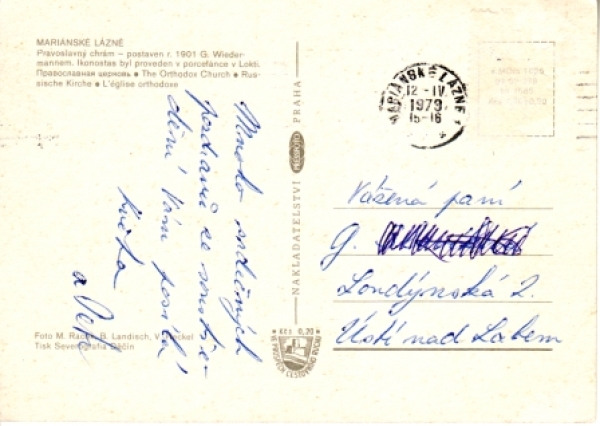 MARIÁNSKÉ LÁZNĚ
Pravoslavný chrám – postaven r. 1901 G. Wieder-
mannem. Ikonostas byl proveden v porcelánce v Lokti.
Православная церковь ● The Orthodox Church ● Rus-
sische Kirche ● L'église orthodoxe
Mnoho srdečných
pozdravů ze
Vám posílá
Květa
a Pepa
Foto M. Raček, B. Landisch, V.
Tisk Severografia Děčín
NAKLADATELSTVÍ PRESSFOTO PRAHA
Kčs 0,20
VE PROSPĚCH CESTOVNÍHO RUCHU
MARIÁNSKÉ LÁZNĚ
12 -IV.
1979
15-16
Vážená paní
G.
Londýnská 2.
Ústí nad Labem